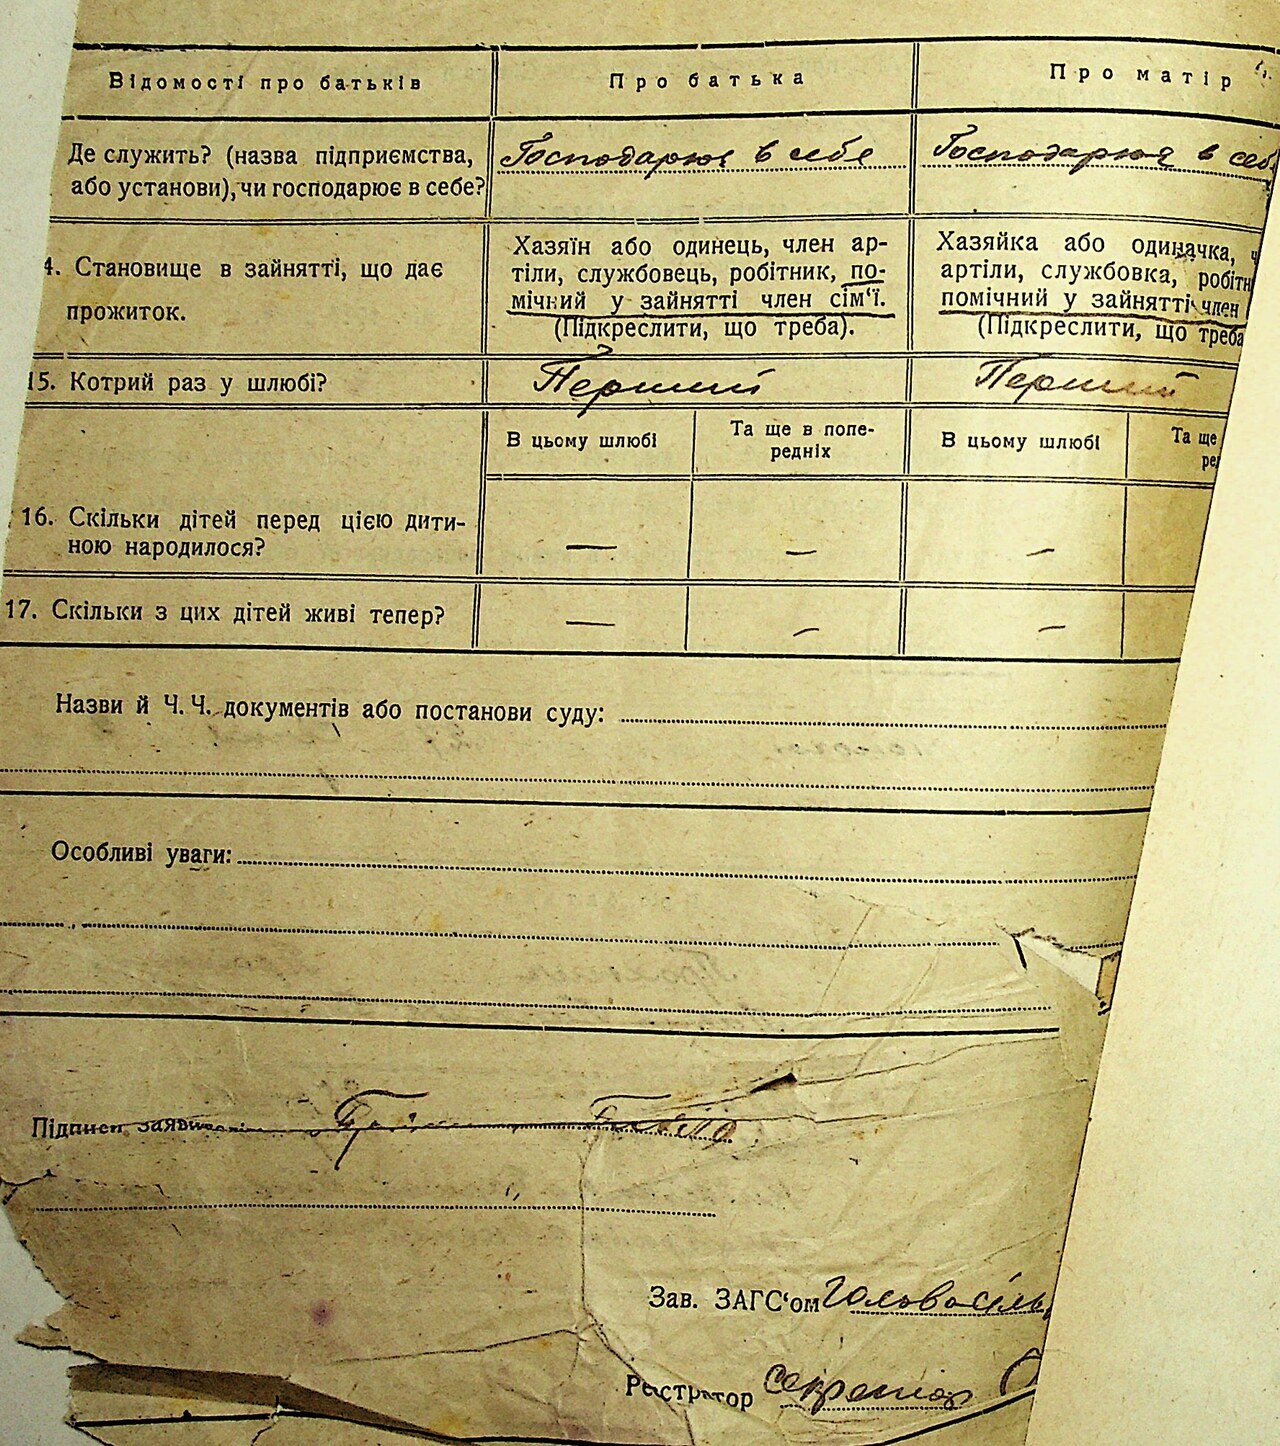 Відомості про батьків Про батька Про матір
Де служить? (назва підприємства, або установи), чи господарює в себе? Господарює в себе Господарює в себ
4. Становище в зайнятті, що дає прожиток.
Хазяїн або одинець, член ар-
тіли, службовець, робітник, по-
мічний у зайнятті член сім'ї.
(Підкреслити, що треба).
Хазяйка або одиначка, ч
артіли, службовка, робітн
помічний у зайнятті член
(Підкреслити, що треба
15. Котрий раз у шлюбі? Перший Перший
В цьому шлюбі
Та ще в попе-
редніх
В цьому шлюбі
Та ще
ред
16. Скільки дітей перед цією дити-
ною народилося? — — —
17. Скільки з цих дітей живі тепер? — — —
Назви й Ч. Ч. документів або постанови суду:
Особливі уваги:
Підписи
Зав. ЗАГС'ом Голова сіль
Реєстратор секретар